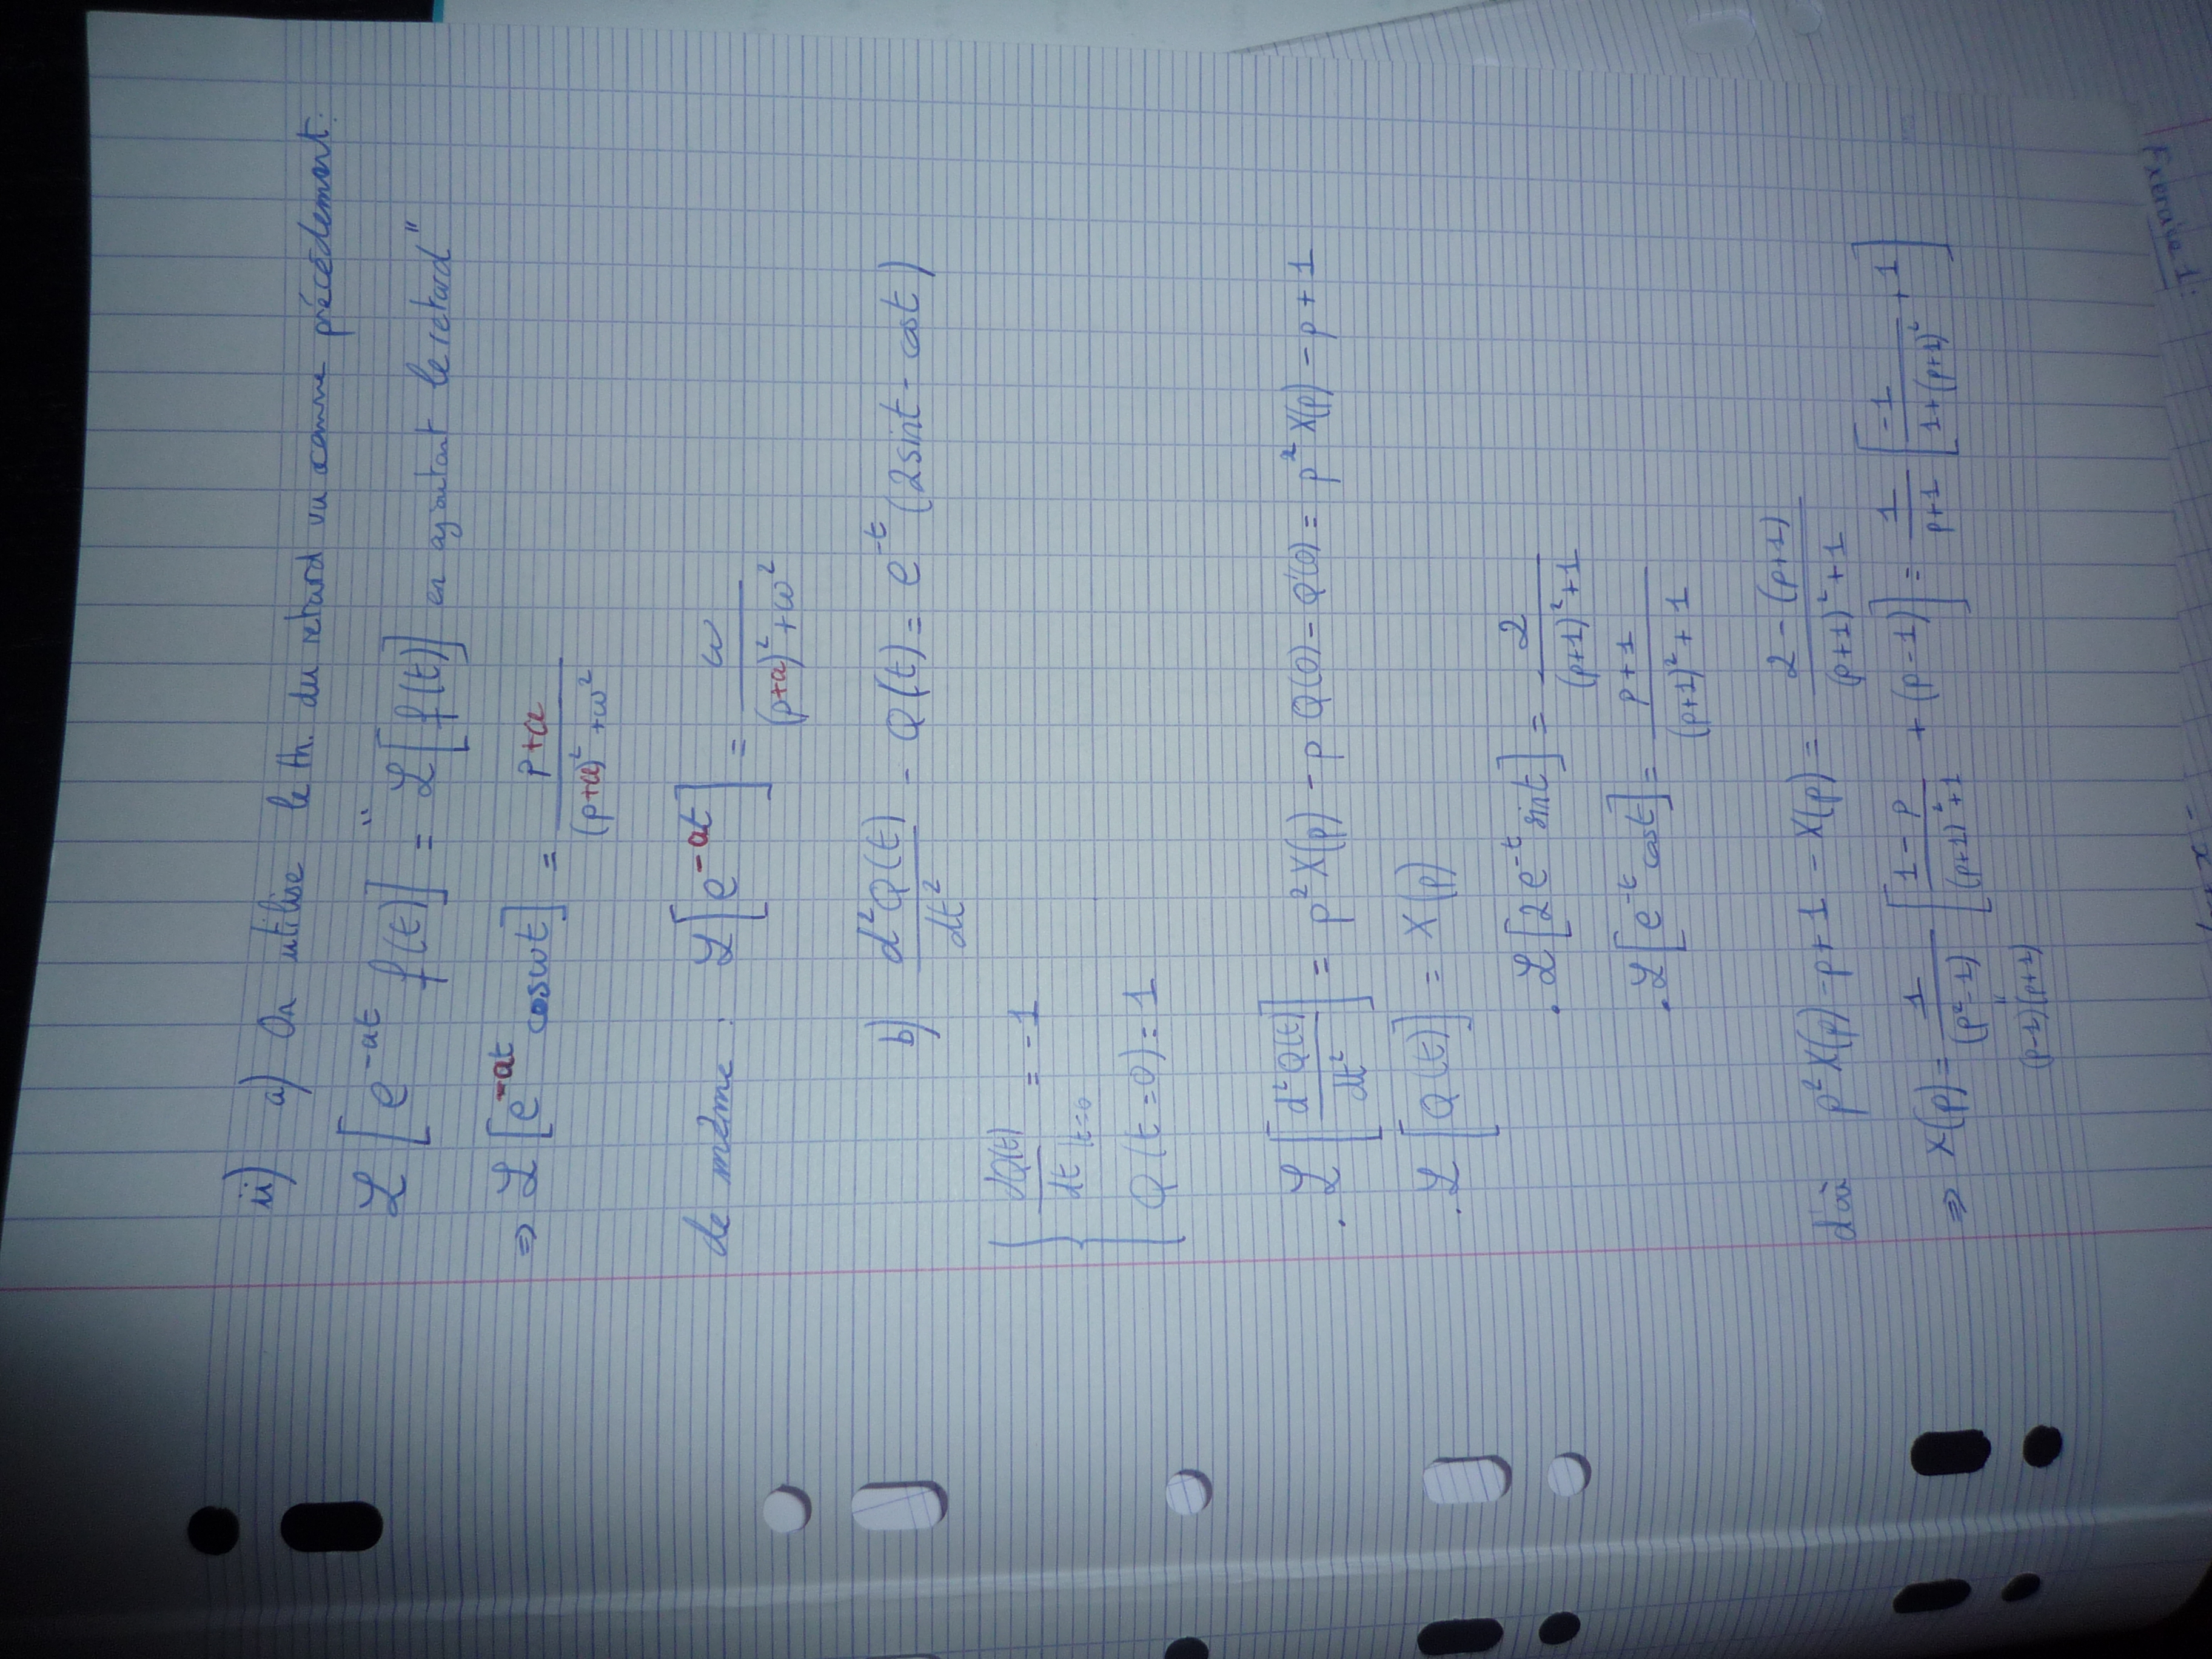 ii) a) On utilise le th. du retard vu comme précédemment.
ℒ[e^{-at} f(t)] "=" ℒ[f(t)] en ajoutant le retard"
⇒ ℒ[e^{-at} cosωt] = (p+a)/((p+a)²+ω²)
de même : ℒ[e^{-at}] = ω/((p+a)²+ω²)
b) d²Q(t)/dt² - Q(t) = e^{-t} (2sint - cost)
{ dQ(t)/dt|t=0 = -1
Q(t=0) = 1
. ℒ[d²Q(t)/dt²] = p²X(p) - p Q(0) - Q'(0) = p²X(p) - p + 1
. ℒ[Q(t)] = X(p)
. ℒ[2e^{-t} sint] = 2/((p+1)²+1)
. ℒ[e^{-t} cost] = (p+1)/((p+1)²+1)
d'où p²X(p) - p + 1 - X(p) = (2-(p+1))/((p+1)²+1)
⇒ X(p) = 1/(p²-1) [(1-p)/((p+1)²+1) + (p-1)] = 1/(p+1) [-1/(1+(p+1)²) + 1]
"
(p-1)(p+1)
Exercice 1: